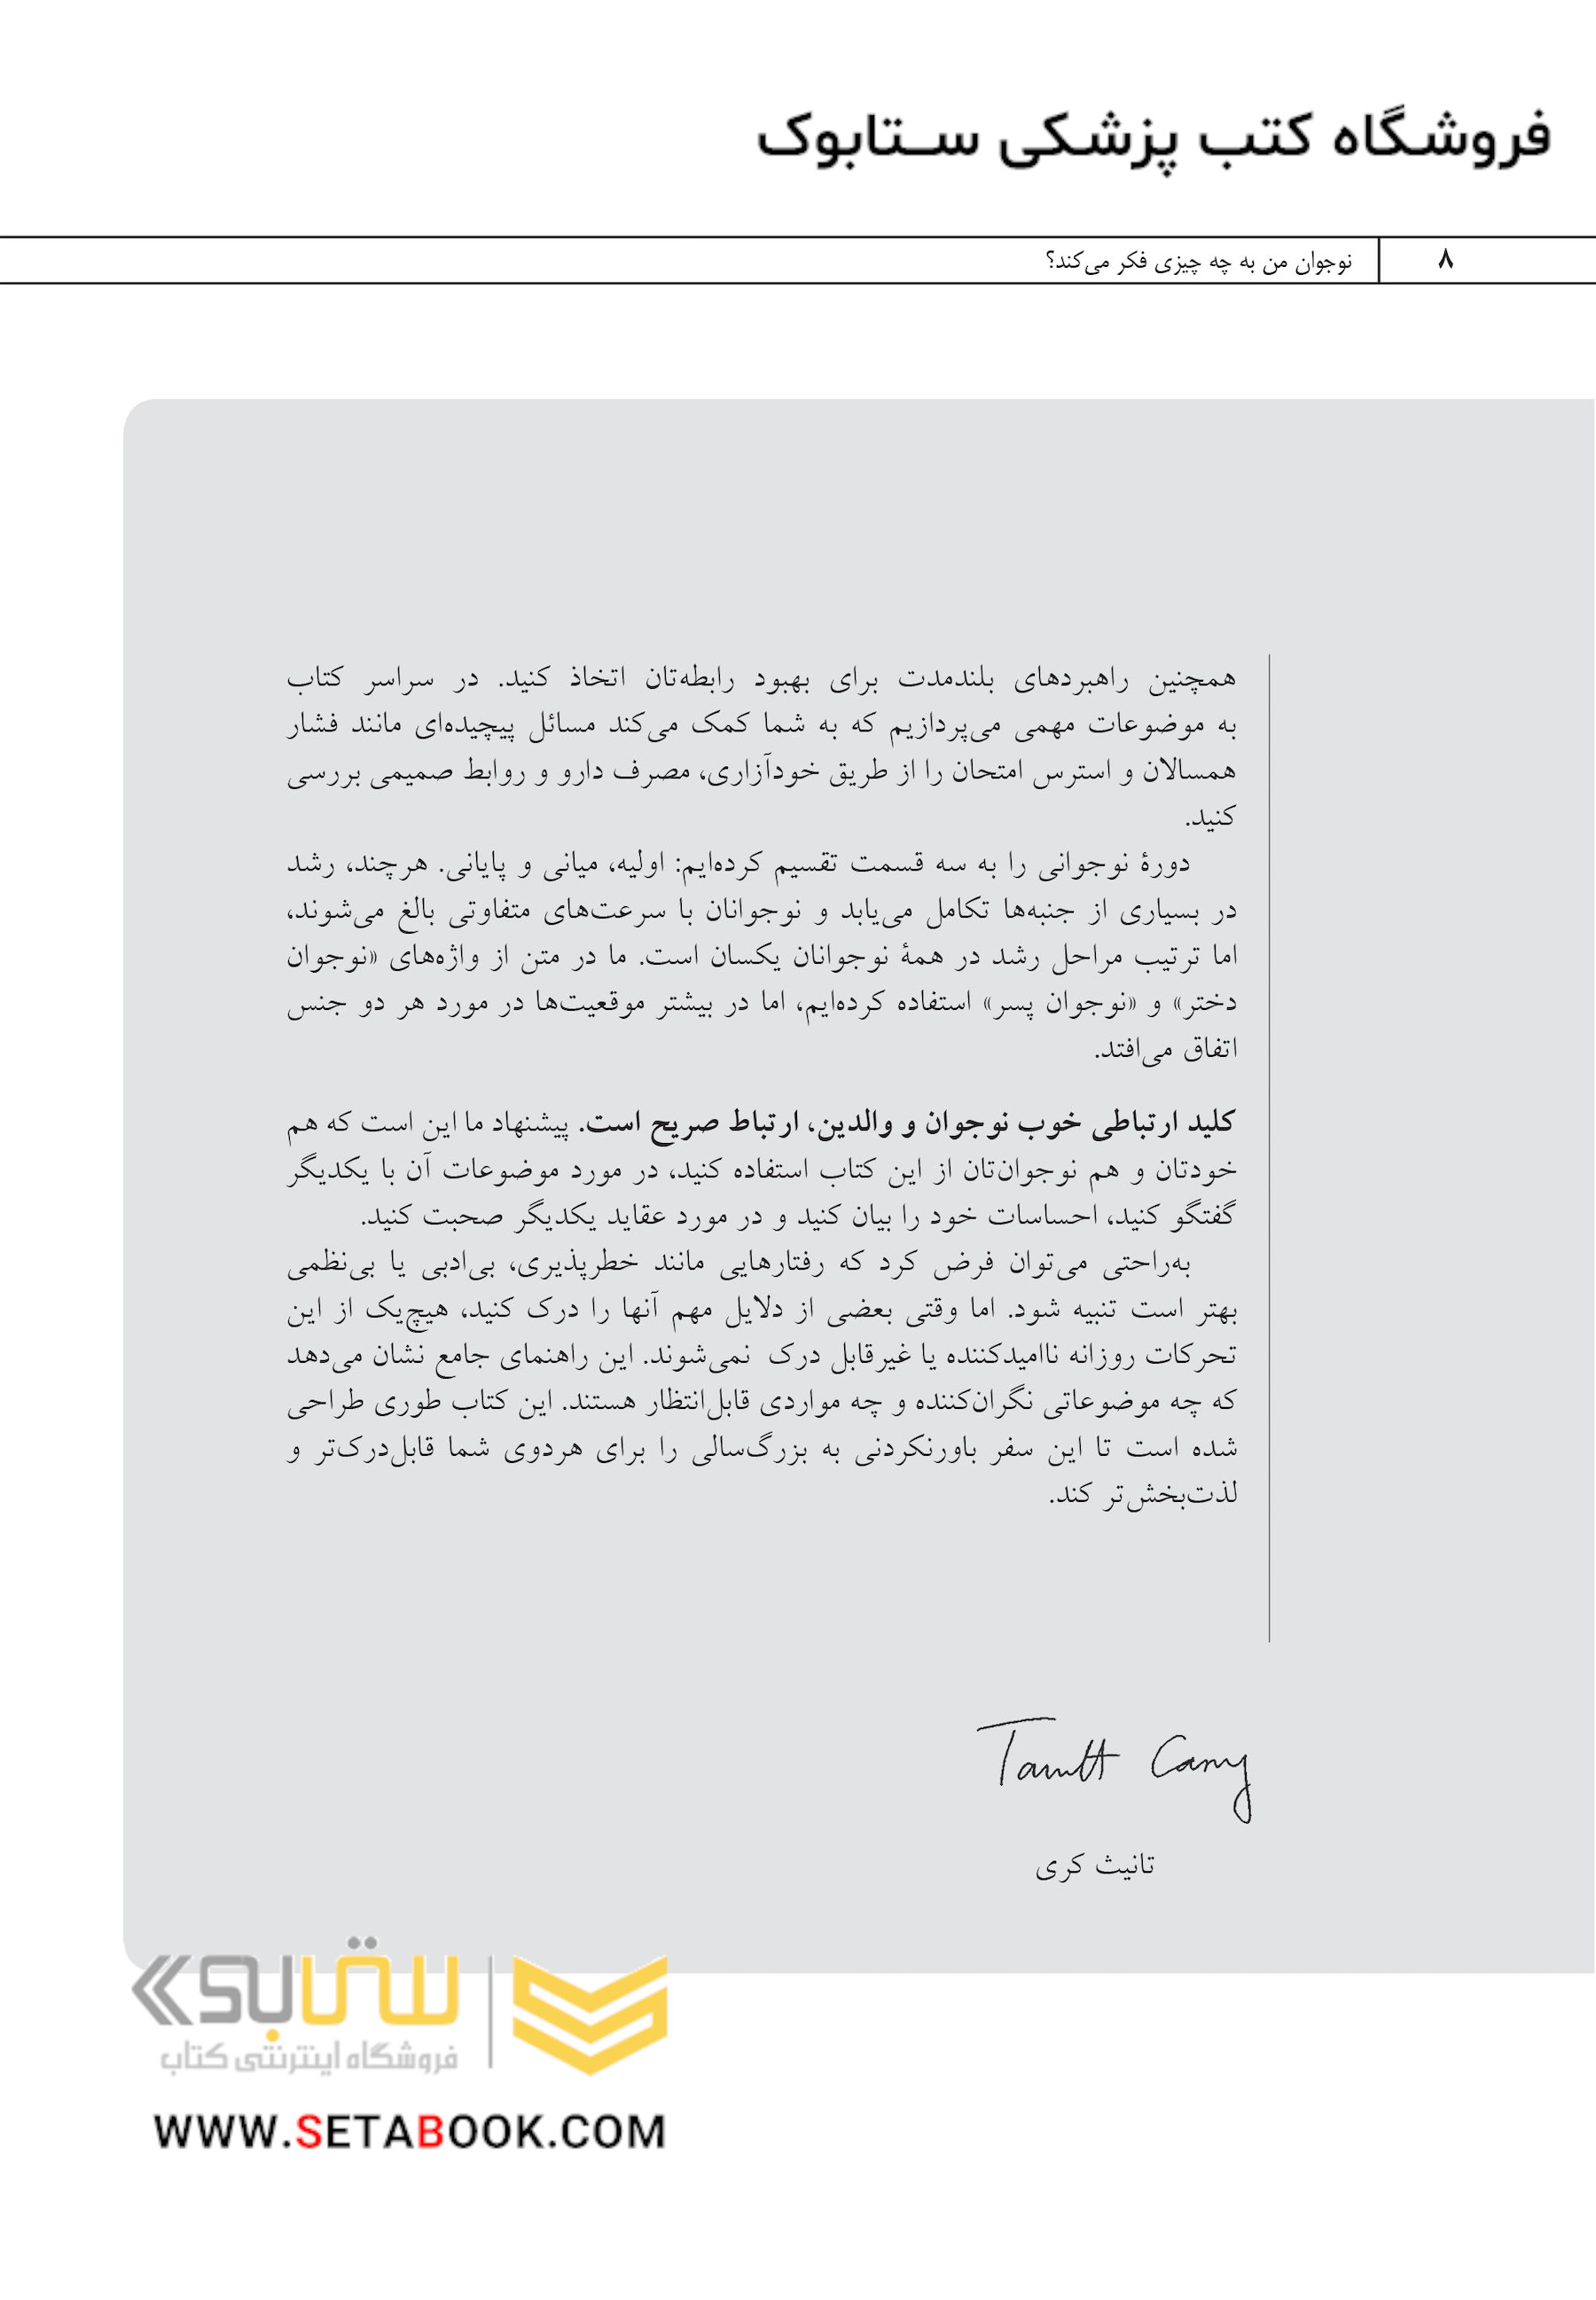 فروشگاه کتب پزشکی ستابوک
۸
نوجوان من به چه چیزی فکر می‌کند؟
همچنین راهبردهای بلندمدت برای بهبود رابطه‌تان اتخاذ کنید. در سراسر کتاب
به موضوعات مهمی می‌پردازیم که به شما کمک می‌کند مسائل پیچیده‌ای مانند فشار
همسالان و استرس امتحان را از طریق خودآزاری، مصرف دارو و روابط صمیمی بررسی
کنید.
دورهٔ نوجوانی را به سه قسمت تقسیم کرده‌ایم: اولیه، میانی و پایانی. هرچند، رشد
در بسیاری از جنبه‌ها تکامل می‌یابد و نوجوانان با سرعت‌های متفاوتی بالغ می‌شوند،
اما ترتیب مراحل رشد در همهٔ نوجوانان یکسان است. ما در متن از واژه‌های «نوجوان
دختر» و «نوجوان پسر» استفاده کرده‌ایم، اما در بیشتر موقعیت‌ها در مورد هر دو جنس
اتفاق می‌افتد.
کلید ارتباطی خوب نوجوان و والدین، ارتباط صریح است. پیشنهاد ما این است که هم
خودتان و هم نوجوان‌تان از این کتاب استفاده کنید، در مورد موضوعات آن با یکدیگر
گفتگو کنید، احساسات خود را بیان کنید و در مورد عقاید یکدیگر صحبت کنید.
به‌راحتی می‌توان فرض کرد که رفتارهایی مانند خطرپذیری، بی‌ادبی یا بی‌نظمی
بهتر است تنبیه شود. اما وقتی بعضی از دلایل مهم آنها را درک کنید، هیچ‌یک از این
تحرکات روزانه ناامیدکننده یا غیرقابل درک نمی‌شوند. این راهنمای جامع نشان می‌دهد
که چه موضوعاتی نگران‌کننده و چه مواردی قابل‌انتظار هستند. این کتاب طوری طراحی
شده است تا این سفر باورنکردنی به بزرگ‌سالی را برای هردوی شما قابل‌درک‌تر و
لذت‌بخش‌تر کند.
تانیث کری
ستابوک
فروشگاه اینترنتی کتاب
WWW.SETABOOK.COM